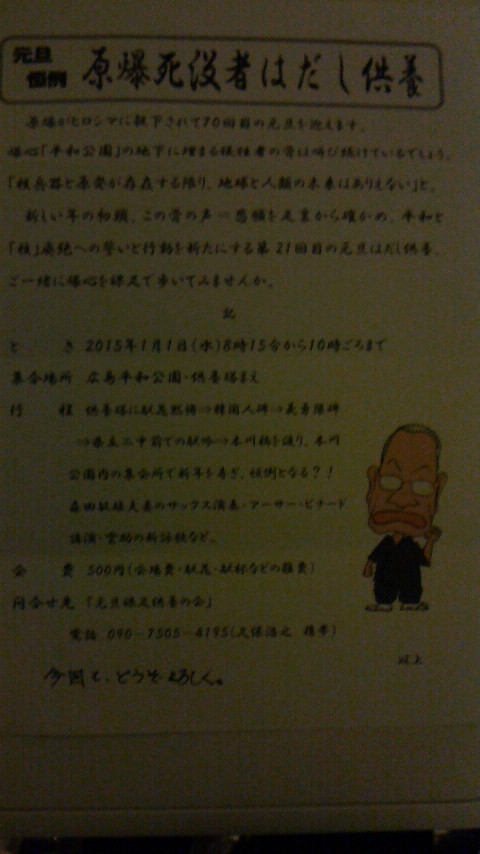 元旦
恒例
原爆死没者はだし供養
原爆がヒロシマに投下されて70回目の元旦を迎えます。
爆心「平和公園」の地下に埋まる犠牲者の骨は叫び続けているでしょう。
「核兵器と原発が存在する限り、地球と人類の未来はありえない」と。
新しい年の初頭、この骨の声＝悲願を足裏から確かめ、平和と
「核」廃絶への誓いと行動を新たにする第21回目の元旦はだし供養。
ご一緒に爆心を裸足で歩いてみませんか。
記
と き 2015年1月1日(水)8時15分から10時ごろまで
集合場所 広島平和公園・供養塔まえ
行 程 供養塔に献花黙祷⇒韓国人碑⇒義勇隊碑
⇒県立二中前での献吟⇒本川橋を渡り、本川
公園内の集会所で新年を寿ぎ、恒例となる？！
森田敏雄夫妻のサックス演奏・アーサー・ビナード
講演・雲助の新詠歌など。
会 費 500円(会場費・献花・献杯などの雑費)
問合せ先 「元旦裸足供養の会」
電話 090-7505-4195(久保浩之 携帯)
以上
今回も、どうぞよろしく。